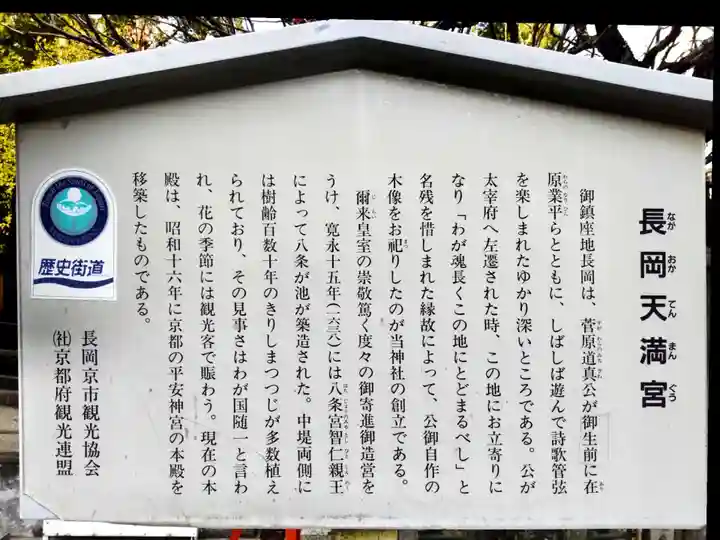 長岡天満宮
御鎮座地長岡は、菅原道真公が御生前に在
原業平らとともに、しばしば遊んで詩歌管弦
を楽しまれたゆかり深いところである。公が
太宰府へ左遷された時、この地にお立寄りに
なり「わが魂長くこの地にとどまるべし」と
名残を惜しまれた縁故によって、公御自作の
木像をお祀りしたのが当神社の創立である。
爾来皇室の崇敬篤く度々の御寄進御造営を
うけ、寛永十五年(一六三八)には八条宮智仁親王
によって八条が池が築造された。中堤両側に
は樹齢百数十年のきりしまつつじが多数植え
られており、その見事さはわが国随一と言わ
れ、花の季節には観光客で賑わう。現在の本
殿は、昭和十六年に京都の平安神宮の本殿を
移築したものである。
長岡京市観光協会
㈳京都府観光連盟
歴史街道